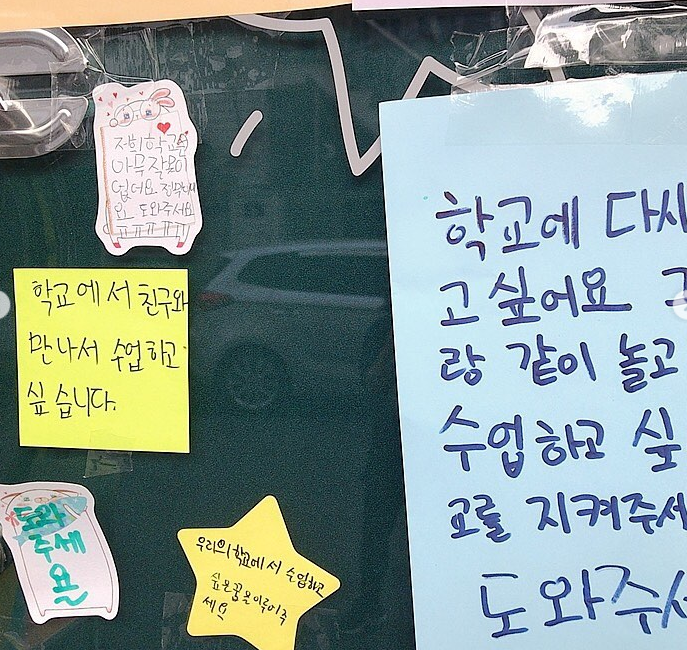 저희 학교는
아무 잘못이
없어요 전부
요 도와주세요
학교에서 친구와
만나서 수업하고
싶습니다.
도와
주세
요
우리의 학교에서 수업하고
싶은 꿈을 이루어주
세요
학교에 다시
고 싶어요
랑 같이 놀고
수업하고 싶
교를 지켜주세
도와주세